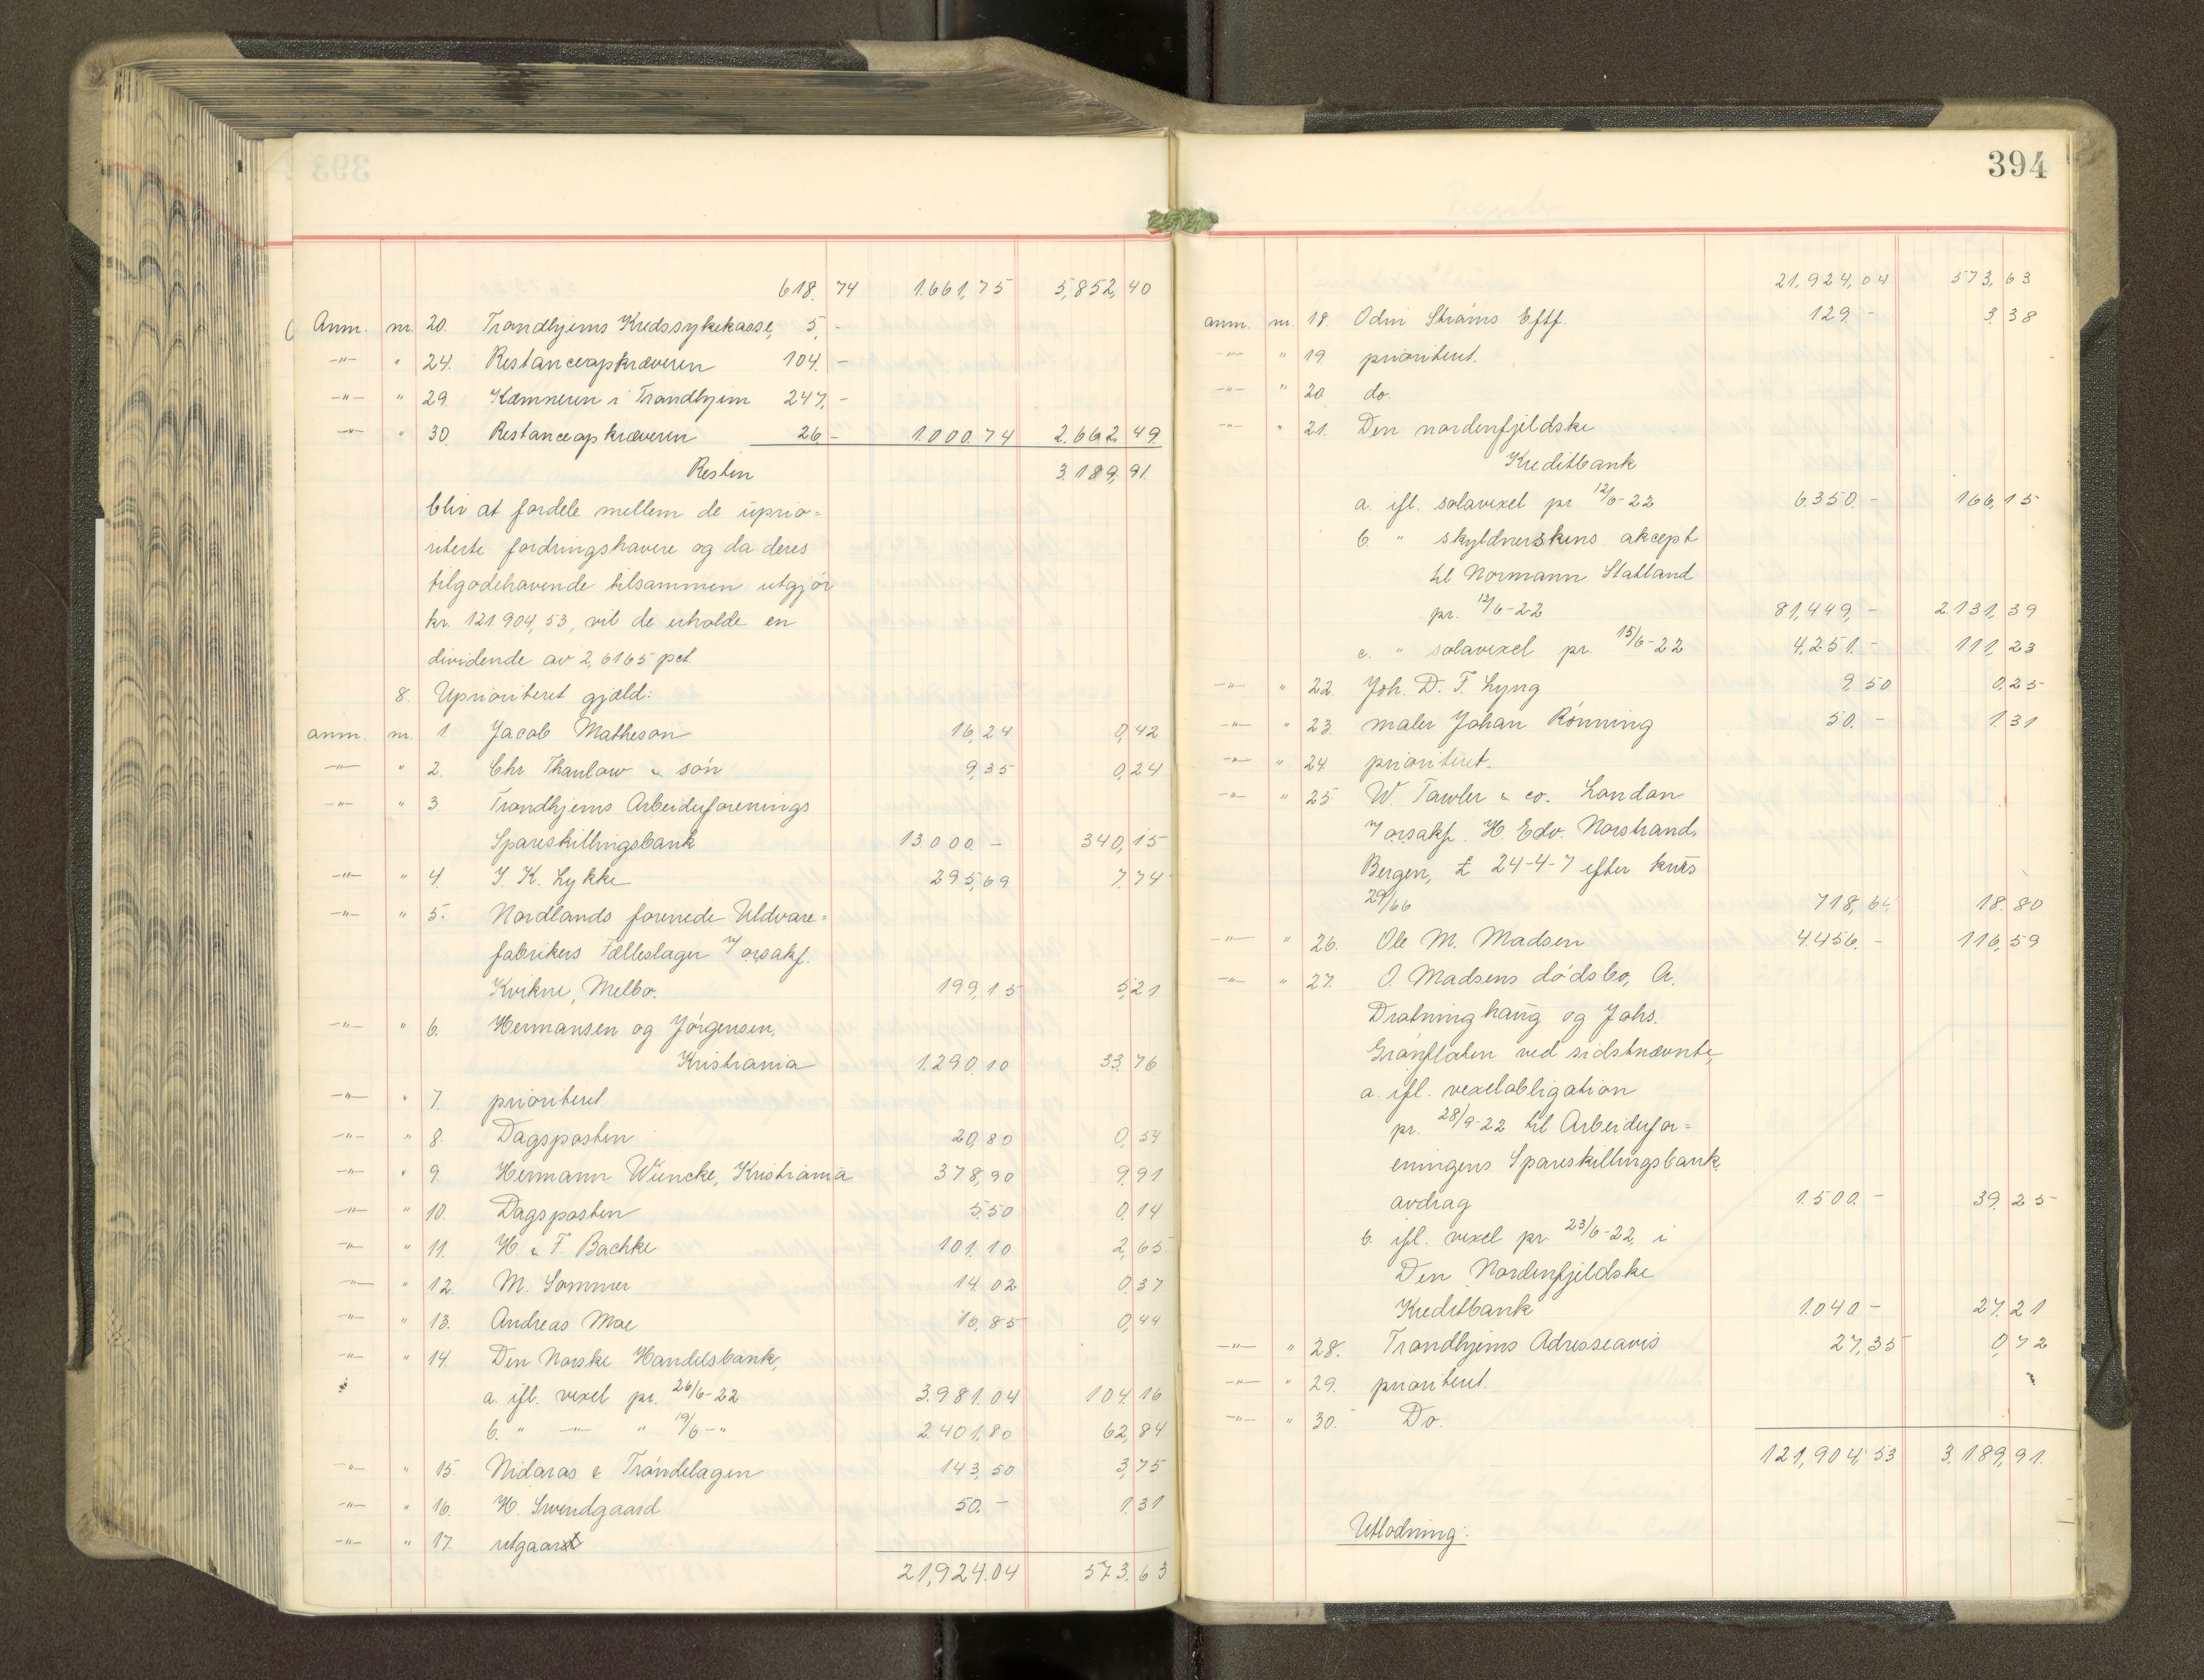 618. 74 1.661,75 5,852,40
Anm. nr. 20. Trondhjems Kredssykekasse, 5,-
-"- " 24. Restanceopkræveren 104.-
-"- " 29. Kæmneren i Trondhjem 247,-
-"- " 30. Restanceopkræveren 26.- 1.000.74 2.662,49.
Resten 3.189,91.
blir at fordele mellem de uprio=
riterte fordringshavere og da deres
tilgodehavende tilsammen utgjør
kr. 121.904,53, vil de erholde en
dividende av 2,6165 pct.
8. Uprioritert gjæld:
anm. nr. 1. Jacob Matheson 16,24 0,42
-"- " 2. Chr. Thaulow & søn 9,35 0,24
-"- " 3. Trondhjems Arbeiderforenings
Spareskillingsbank 13.000.- 340,15
-"- " 4. I. K. Lykke 295,69 7.74
-"- " 5. Nordlands forenede Uldvare=
fabrikers Fælleslager v/ orsakf.
Kvikne, Melbo. 199,15 5,21
-"- " 6. Hermansen og Jørgensen,
Kristiania 1.290.10 33.76
-"- " 7. prioritert.
-"- " 8. Dagsposten 20,80 0,54
-"- " 9. Hermann Wüncke, Kristiania 378,90 9.91
-"- " 10. Dagsposten 5.50 0.14
-"- " 11. H. & F. Bachke 101.10 2,65.
-"- " 12. M. Sommer 14.02 0.37
-"- " 13. Andreas Moe 16,85 0,44
-"- " 14. Den Norske Handelsbank,
a. ifl. vexel pr. 26/6-22 3.981.04 104.16
b. " -"- " 19/6-" 2.401,80 62,84
-"- " 15. Nidaros & Trøndelagen 143,50 3,75
-"- " 16. H. Svendgaard 50.- 1.31
-"- " 17. utgaar
21,924.04 573.63
394
21,924,04 573,63
anm. nr. 18. Odin Strøms Eftf. 129.- 3.38
-"- " 19 prioritert.
-"- " 20 do.
-"- " 21. Den nordenfjeldske
Kreditbank
a. ifl. solavexel pr 12/6-22 6.350.- 166,15
b. " skyldnerskens akcept
til Normann Statland
pr. 12/6-22 81,449,- 2.131,39
c. " solavexel pr. 15/6-22 4,251.- 111,23
-"- " 22. Joh. D. F. Lyng 9,50 0,25
-"- " 23. maler Johan Rønning 50.- 1.31
-"- " 24. prioritert.
-"- " 25. W. Fowler & co. London
v/ orsakf. H. Edv. Norstrand,
Bergen, £ 24-4-7 efter kurs
718,64 18.80
-"- " 26. Ole M. Madsen 4.456.- 116,59
-"- " 27. O. Madsens dødsbo, A.
Dratninghaug og Johs.
Granflaten ved sidstnævnte,
a. ifl. vexelobligation
pr. 28/9-22 til Arbeiderfor=
eningens Spareskillingsbank.
avdrag 1.500.- 39.25
b. ifl. vexel pr. 23/6-22, i
Den Nordenfjeldske
Kreditbank 1.040- 27.21
-"- " 28. Trondhjems Adresseavis 27,35 0,72
-"- " 29. prioritert.
-"- " 30. Do.
121,904,53 3.189,91.
Utlodning: